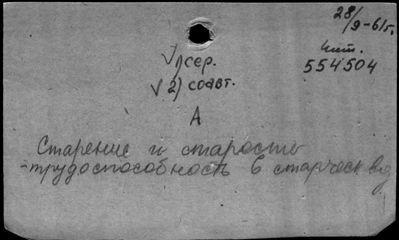 28/
9-61г.
√ 1) сер.
554504
√ 2) соавт.
А
Старение и старость
-трудоспособность в старческ